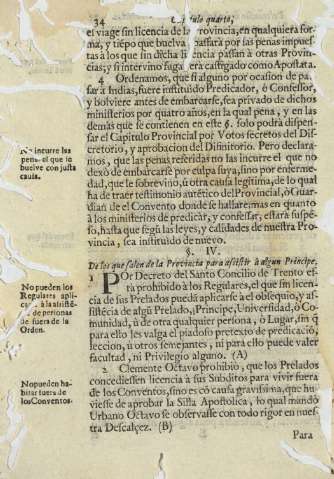 34
quarto,
el viage sin licencia de la Provincia, en qualquiera for-
ma, y tiẽpo que buelva passarà por las penas impues-
tas à los que sin dicha licencia passan à otras Provin-
cias; y si intervino fuga serà castigado como Apostata.
4 Ordenamos, que si alguno por ocasion de pa-
sar à Indias, fuere instituìdo Predicador, ò Confessor,
y bolviere antes de embarcarse, sea privado de dichos
ministerios por quatro años, en la qual pena, y en las
demàs que se contienen en este §. solo podrà dispen-
sar el Capitulo Provincial por Votos secretos del Dis-
cretorio, y aprobacion del Difinitorio. Pero declara-
mos, que las penas referidas no las incurre el que no
dexò de embarcarse por culpa suya, sino por enferme-
dad, que le sobrevino, ù otra causa legitima, de lo qual
ha de traer testimonio autẽtico del Provincial, ò Guar-
dian de el Convento donde se hallare; mas en quanto
à los ministerios de predicar, y confessar, estarà suspẽ-
so, hasta que segũ las leyes, y calidades de nuestra Pro-
vincia, sea instituìdo de nuevo.
incurre las
penas el que se
buelve con justa
causa.
§. IV.
De los que salen de la Provincia para assistir à algun Principe.
1 POr Decreto del Santo Concilio de Trento es-
tà prohibido à los Regulares, el que sin licen-
cia de sus Prelados pueda aplicarse à el obsequio, y as-
sistẽcia de algũ Prelado, Principe, Universidad, ò Co-
munidad, ù de otra qualquier persona, ù Lugar, sin q̃
para ello les valga el piadoso pretexto de predicaciõ,
leccion, ù otros semejantes, ni para ello puede valer
facultad, ni Privilegio alguno. (A)
No pueden los
Regulares apli-
à la assistẽ-
de personas
de fuera de la
Orden.
2 Clemente Octavo prohibiò, que los Prelados
concediessen licencia à sus Subditos para vivir fuera
de los Conventos, sino es cõ causa gravissima, que hu-
viesse de aprobar la Silla Apostolica, lo qual mandò
Urbano Octavo se observasse con todo rigor en nues-
tra Descalçez. (B)
No pueden ha-
bitar fuera de
los Conventos.
Para